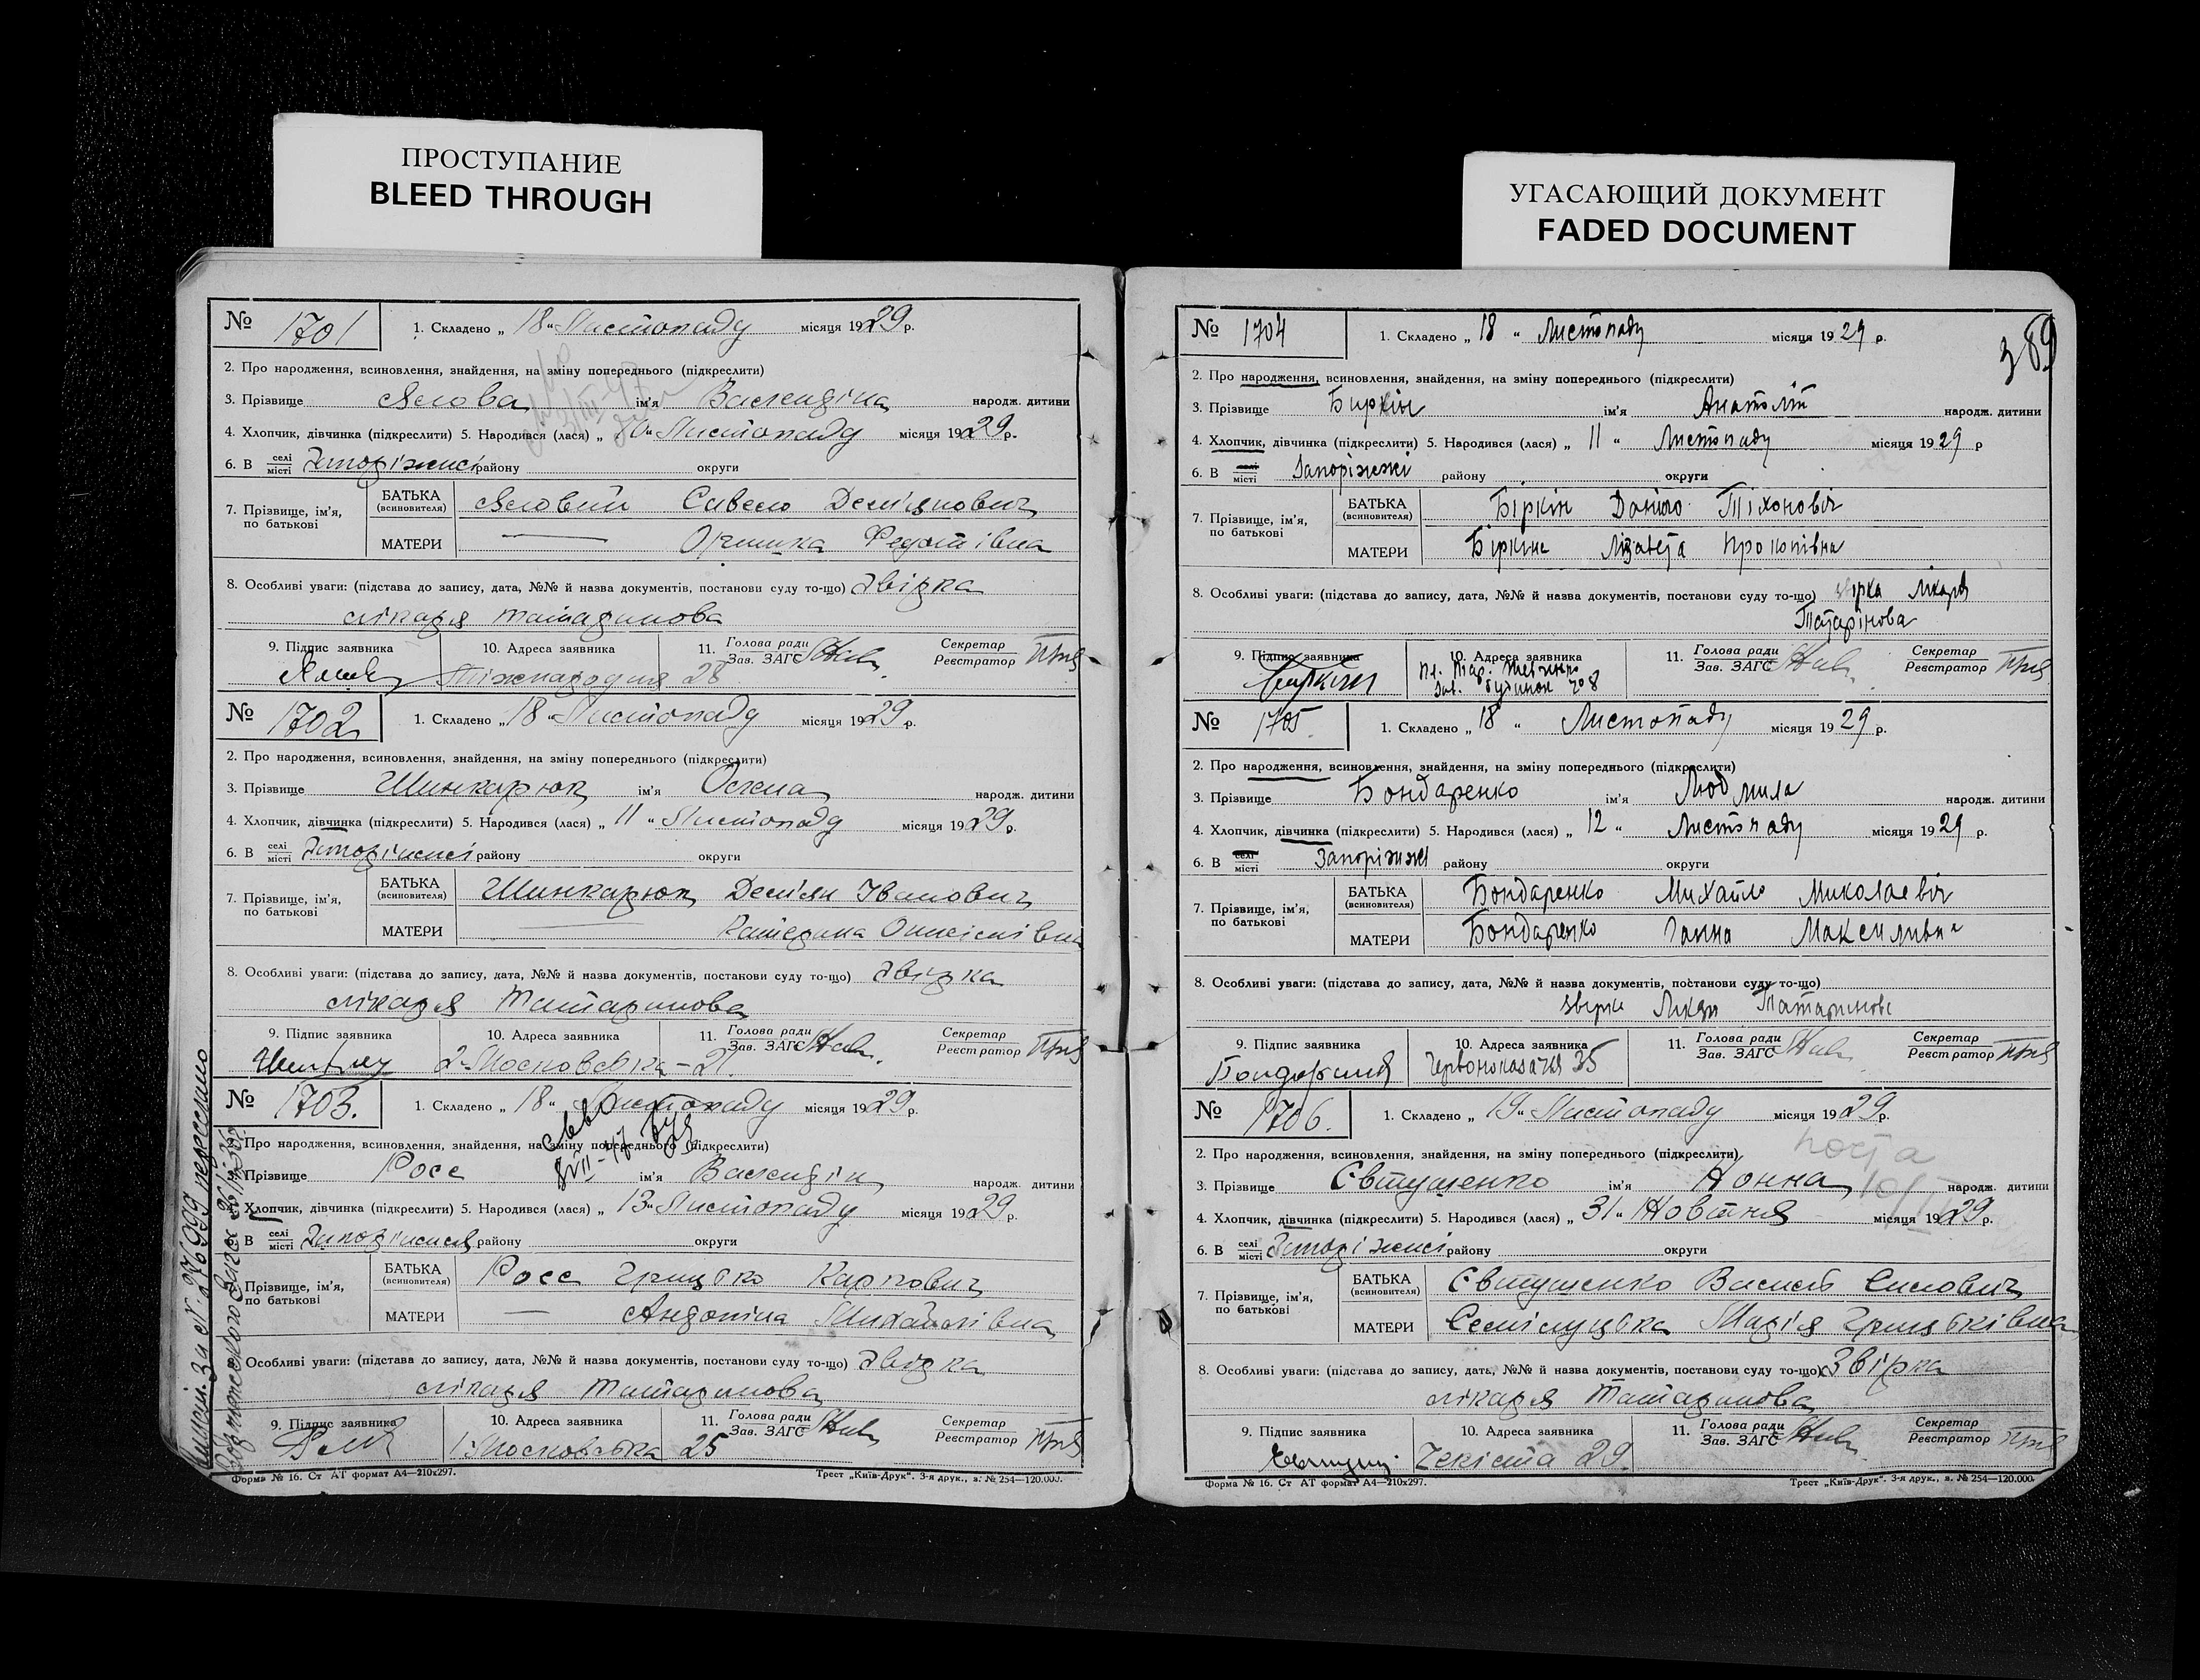 ПРОСТУПАНИЕ
BLEED THROUGH
УГАСАЮЩИЙ ДОКУМЕНТ
FADED DOCUMENT
№ 1701 1. Складено „ 18 “ Листопаду місяця 1929 р.
2. Про народження, всиновлення, знайдення, на зміну попереднього (підкреслити)
3. Прізвище Ялова ім'я Валендіна народж. дитини
4. Хлопчик, дівчинка (підкреслити) 5. Народився (лася) „ “ Листопаду місяця 1929 р.
6. В селі місті Запоріжжі району округи
7. Прізвище, ім'я, по батькові БАТЬКА (всиновителя) Яловий Савело Дем'янович
МАТЕРИ — Оришка Федотівна
8. Особливі уваги: (підстава до запису, дата, №№ й назва документів, постанови суду то-що) Звірка
лікаря Татаринова
9. Підпис заявника 10. Адреса заявника 11. Голова ради Зав. ЗАГС Секретар Реєстратор
28
№ 1702 1. Складено „ 18 “ Листопаду місяця 1929 р.
2. Про народження, всиновлення, знайдення, на зміну попереднього (підкреслити)
3. Прізвище Шинкарюк ім'я народж. дитини
4. Хлопчик, дівчинка (підкреслити) 5. Народився (лася) „ 11 “ Листопаду місяця 1929 р.
6. В селі місті Запоріжжі району округи
7. Прізвище, ім'я, по батькові БАТЬКА (всиновителя) Шинкарюк Дем'ян Іванович
МАТЕРИ — Катерина
8. Особливі уваги: (підстава до запису, дата, №№ й назва документів, постанови суду то-що) Звірка
лікаря Татаринова
9. Підпис заявника 10. Адреса заявника 11. Голова ради Зав. ЗАГС Секретар Реєстратор
2-Московська-21.
№ 1703. 1. Складено „ 18 “ Листопаду місяця 1929 р.
Про народження, всиновлення, знайдення, на зміну попереднього (підкреслити)
Прізвище Росс ім'я Валендін народж. дитини
Хлопчик, дівчинка (підкреслити) 5. Народився (лася) „ 13 “ Листопаду місяця 1929 р.
В селі місті Запоріжжя району округи
Прізвище, ім'я, по батькові БАТЬКА (всиновителя) Росс Грицько Карпович
МАТЕРИ — Андоніна Михайлівна
Особливі уваги: (підстава до запису, дата, №№ й назва документів, постанови суду то-що) Звірка
лікаря Татаринова
9. Підпис заявника 10. Адреса заявника 11. Голова ради Зав. ЗАГС Секретар Реєстратор
Московська 25
Форма № 16. Ст АТ формат А4—210x297. Трест „Київ-Друк“. 3-я друк., з. № 254—120.000.
389
№ 1704 1. Складено „ 18 “ Листопаду місяця 1929 р.
2. Про народження, всиновлення, знайдення, на зміну попереднього (підкреслити)
3. Прізвище Биркін ім'я Анатоліт народж. дитини
4. Хлопчик, дівчинка (підкреслити) 5. Народився (лася) „ 11 “ Листопаду місяця 1929 р
6. В селі місті Запоріжжі району округи
7. Прізвище, ім'я, по батькові БАТЬКА (всиновителя) Біркін Даніло Тіхоновіч
МАТЕРИ Біркіна Лізавета Прокопівна
8. Особливі уваги: (підстава до запису, дата, №№ й назва документів, постанови суду то-що) звірка лікаря
Татарінова
9. Підпис заявника 10. Адреса заявника 11. Голова ради Зав. ЗАГС Секретар Реєстратор
будинок 208
№ 1705. 1. Складено „ 18 “ Листопаду місяця 1929 р.
2. Про народження, всиновлення, знайдення, на зміну попереднього (підкреслити)
3. Прізвище Бондаренко ім'я Людмила народж. дитини
4. Хлопчик, дівчинка (підкреслити) 5. Народився (лася) „ 12 “ Листопаду місяця 1929 р.
6. В селі місті Запоріжжі району округи
7. Прізвище, ім'я, по батькові БАТЬКА (всиновителя) Бондаренко Михайло Миколаевіч
МАТЕРИ Бондаренко Ганна Максимивна
8. Особливі уваги: (підстава до запису, дата, №№ й назва документів, постанови суду то-що)
звірка Лікаря Татаринова
9. Підпис заявника 10. Адреса заявника 11. Голова ради Зав. ЗАГС Секретар Реєстратор
Червоноказачая 35
№ 1706. 1. Складено „ 19 “ Листопаду місяця 1929 р.
2. Про народження, всиновлення, знайдення, на зміну попереднього (підкреслити)
3. Прізвище Євтушенко ім'я Нонна народж. дитини
4. Хлопчик, дівчинка (підкреслити) 5. Народився (лася) „ 31 “ Жовтня місяця 1929 р.
6. В селі місті Запоріжжі району округи
7. Прізвище, ім'я, по батькові БАТЬКА (всиновителя) Євтушенко Василь Силович
МАТЕРИ Марія Грицьківна
8. Особливі уваги: (підстава до запису, дата, №№ й назва документів, постанови суду то-що) Звірка
лікаря Татаринова
9. Підпис заявника 10. Адреса заявника 11. Голова ради Зав. ЗАГС Секретар Реєстратор
Чекіста 29.
Форма № 16. Ст АТ формат А4—210x297. Трест „Київ-Друк“. 3-я друк., з. № 254—120.000.